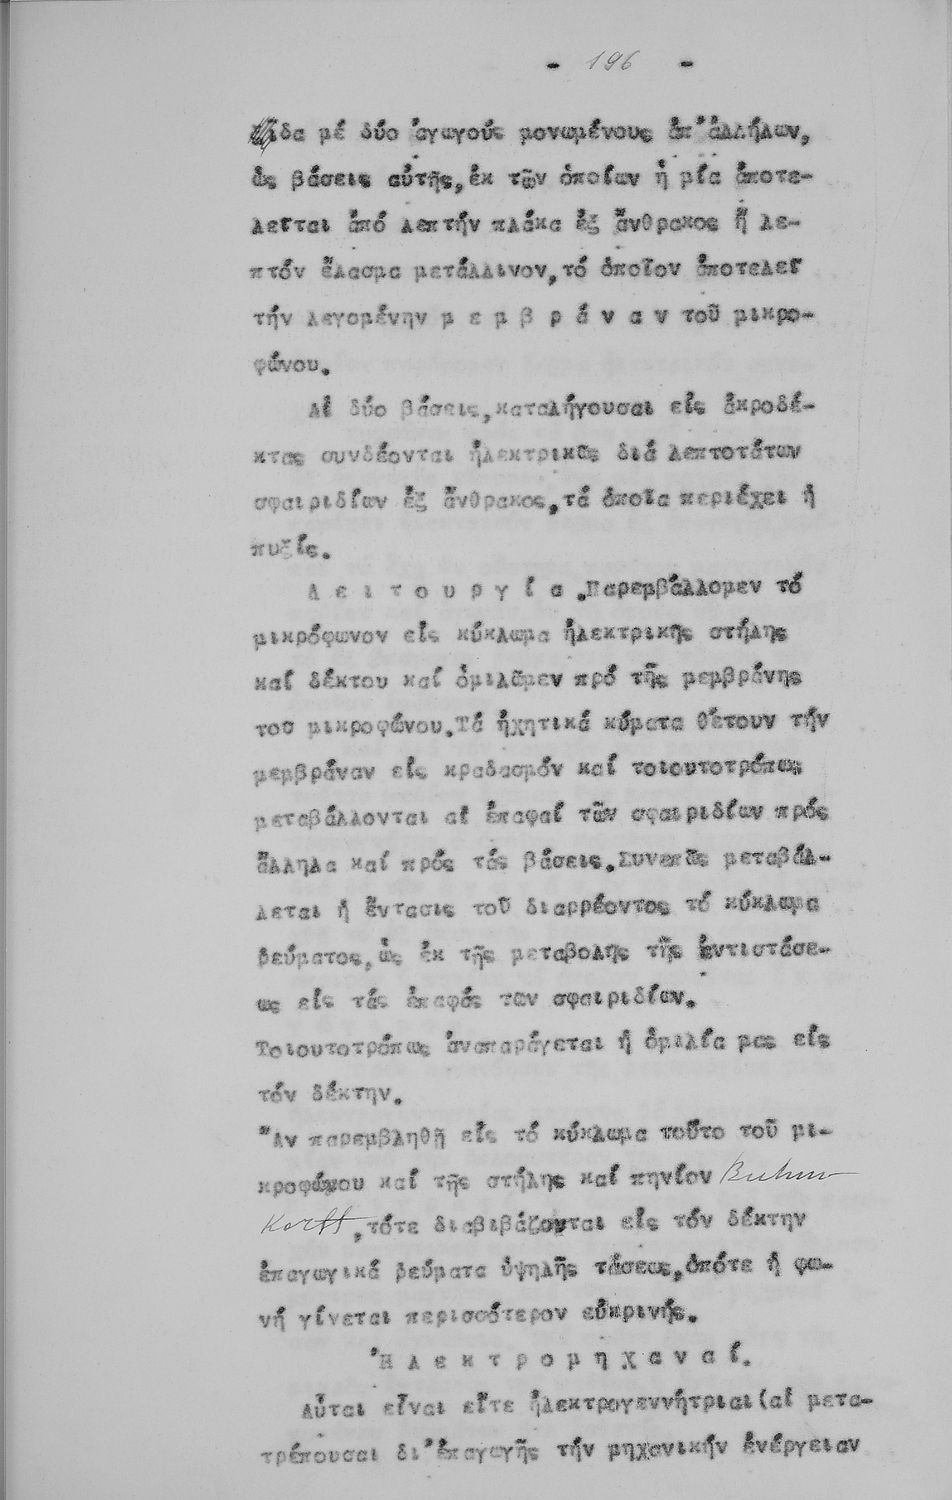 - 196 -
ξίδα μέ δύο ἀγωγούς μονωμένους ἀπ'ἀλλήλων,
ὡς βάσεις αὐτῆς, ἐκ τῶν ὁποίων ἡ μία ἀποτε-
λεῖται ἀπό λεπτήν πλάκα ἐξ ἄνθρακος ἤ λε-
πτόν ἔλασμα μετάλλινον, τό ὁποῖον ἀποτελεῖ
τήν λεγομένην μ ε μ β ρ ά ν α ν τοῦ μικρο-
φώνου.
Αἱ δύο βάσεις, καταλήγουσαι εἰς ἀκροδέ-
κτας συνδέονται ἠλεκτρικῶς διά λεπτοτάτων
σφαιριδίων ἐξ ἄνθρακος, τά ὁποῖα περιέχει ἡ
πυξίς.
Λ ε ι τ ο υ ρ γ ί α. Παρεμβάλλομεν τό
μικρόφωνον εἰς κύκλωμα ἠλεκτρικῆς στήλης
καί δέκτου καί ὁμιλῶμεν πρό τῆς μεμβράνης
του μικροφώνου. Τά ἠχητικά κύματα θέτουν τήν
μεμβράναν εἰς κραδασμόν καί τοιουτοτρόπως
μεταβάλλονται αἱ ἐπαφαί τῶν σφαιριδίων πρός
ἄλληλα καί πρός τάς βάσεις. Συνεπῶς μεταβάλ-
λεται ἡ ἔντασις τοῦ διαρρέοντος τό κύκλωμα
ρεύματος, ὡς ἐκ τῆς μεταβολῆς τῆς ἀντιστάσε-
ως εἰς τάς ἐπαφάς των σφαιριδίων.
Τοιουτοτρόπως ἀναπαράγεται ἡ ὁμιλία μας εἰς
τόν δέκτην.
Ἄν παρεμβληθῇ εἰς τό κύκλωμα τοῦτο τοῦ μι-
κροφώνου καί τῆς στήλης καί πηνίον Buhm
Korff, τότε διαβιβάζονται εἰς τόν δέκτην
ἐπαγωγικά ρεύματα ὑψηλῆς τάσεως, ὁπότε ἡ φω-
νή γίνεται περισσότερον εὐκρινής.
Ἠ λ ε κ τ ρ ο μ η χ α ν α ί.
Αὗται εἶναι εἴτε ἠλεκτρογεννήτριαι (αἱ μετα-
τρέπουσαι δι'ἐπαγωγῆς τήν μηχανικήν ἐνέργειαν